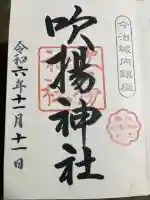 今治城内鎮座
吹揚神社
令和六年十一月十一日